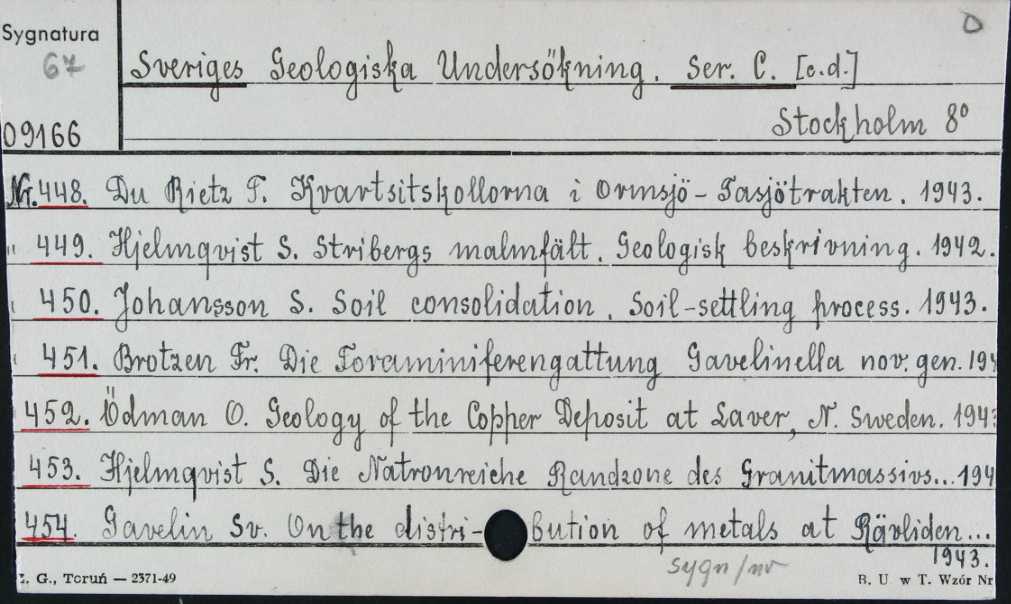 O
Sygnatura
67
Sveriges Geologiska Undersökning. Ser. C. [c.d.]
Stockholm 8°
09166
Nr. 448. Du Rietz T. Kvartsitskollorna i Ormsjö-Tasjötrakten. 1943.
" 449. Hjelmqvist S. Stribergs malmfält. Geologisk beskrivning. 1942.
" 450. Johansson S. Soil consolidation. Soil-settling process. 1943.
" 451. Brotzen Fr. Die Foraminiferengattung Gavelinella nov. gen. 194
452. Ödman O. Geology of the Copper Deposit at Laver, N. Sweden. 1943
453. Hjelmqvist S. Die Natronreiche Randzone des Granitmassivs... 194
454. Gavelin Sv. On the distri-bution of metals at Rävliden...
1943.
sygn/nv
Z. G., Toruń — 2371-49
B. U. w T. Wzór Nr